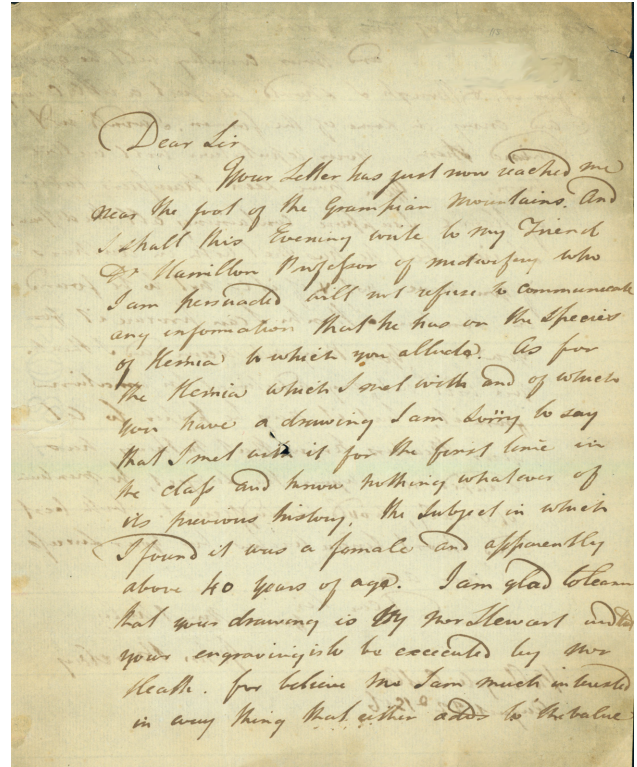 Dear Sir
Your Letter has just now reached me
near the foot of the Grampian Mountains. And
I shall this Evening write to my Friend
Dr Hamilton Professor of midwifery who
I am persuaded will not refuse to communicate
any information that he has on the Species
of Hernia to which you allude. As for
the Hernia which I met with and of which
you have a drawing I am sorry to say
that I met with it for the first time in
the class and know nothing whatever of
its previous history, the Subject in which
I found it was a female and apparently
above 40 years of age. I am glad to learn
that your drawing is by Mr Stewart and that
your engraving is to be executed by Mr
Heath. for believe me I am much interested
in every thing that either adds to the value